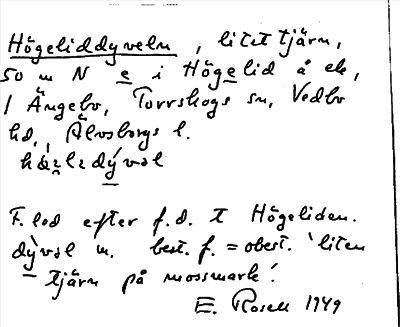 Högeliddyveln, litet tjärn,
50 m N e i Högelid å ek,
1 Ängebo, Torrskogs sn, Vedbo
hd, Älvsborgs l.
dývəl
F. led efter f.d. t Högeliden.
dývəl m. best. f. = obest. 'liten
tjärn på mossmark'.
E. Rosell 1949